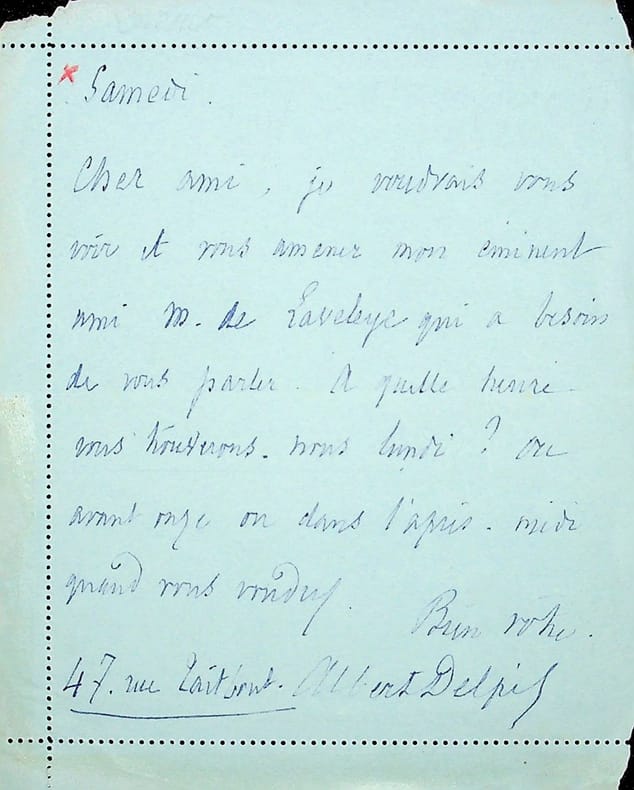 Samedi.
Cher ami, je voudrais vous
voir et vous amener mon éminent
ami M. de Laveleye qui a besoin
de vous parler. A quelle heure
vous trouverons-nous lundi ? ou
avant onze ou dans l'après-midi
quand vous voudrez.
Bien vôtre.
47. rue Taitbout. Albert Delpit